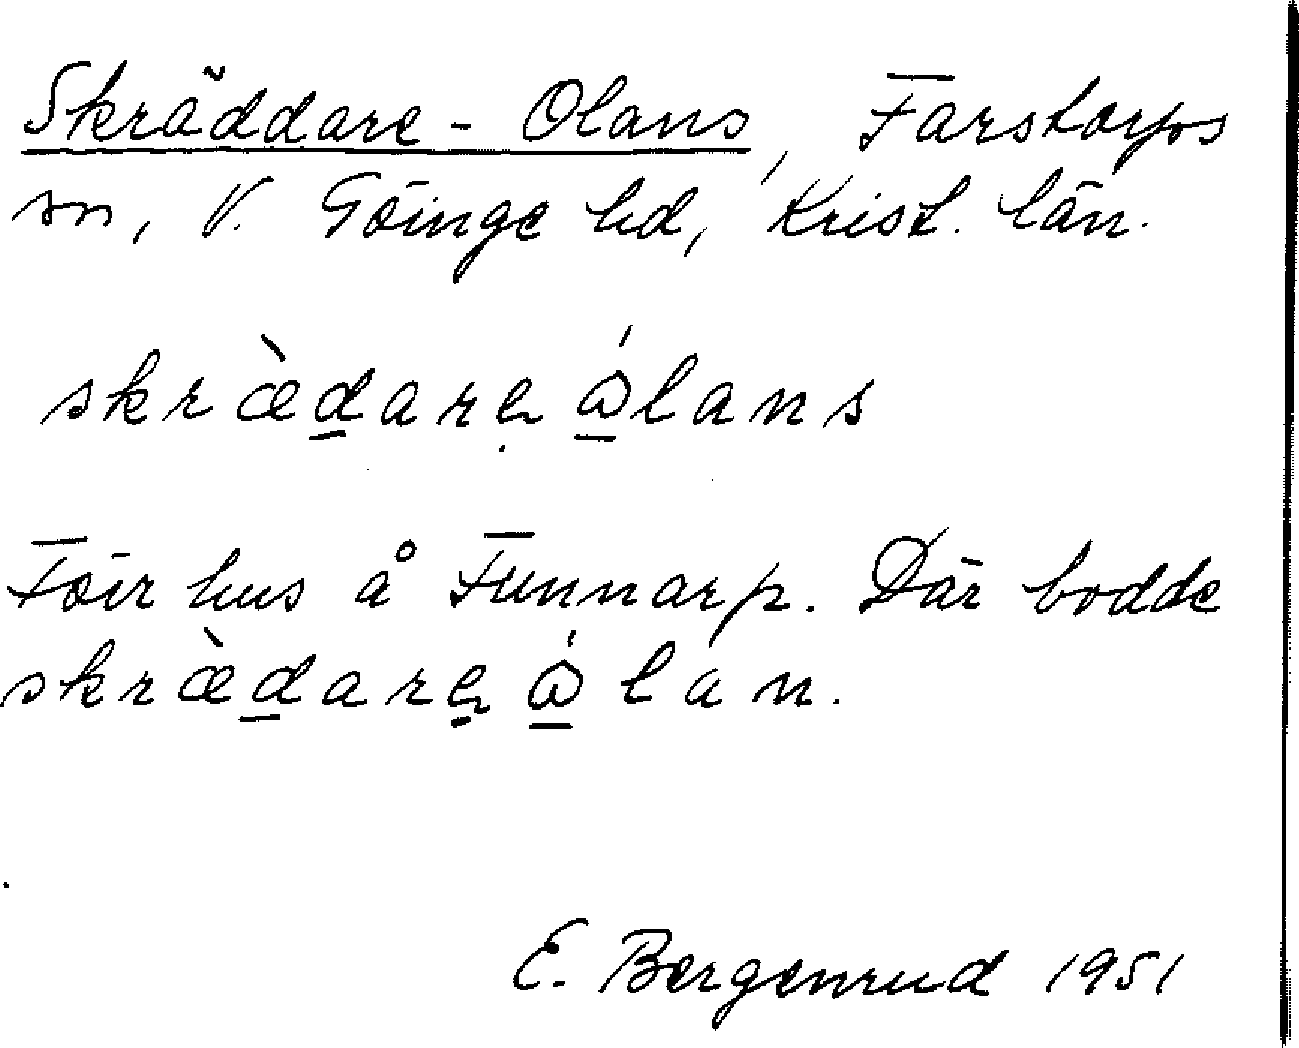 Skräddare - Olans, Farstorps
sn, V. Göinge hd, Krist. län.
skræ̀d̲arę ώ̲lans
Förr hus å Funnarp. Där bodde
skræ̀d̲arę ώ̲lan.
E. Bergenrud 1951